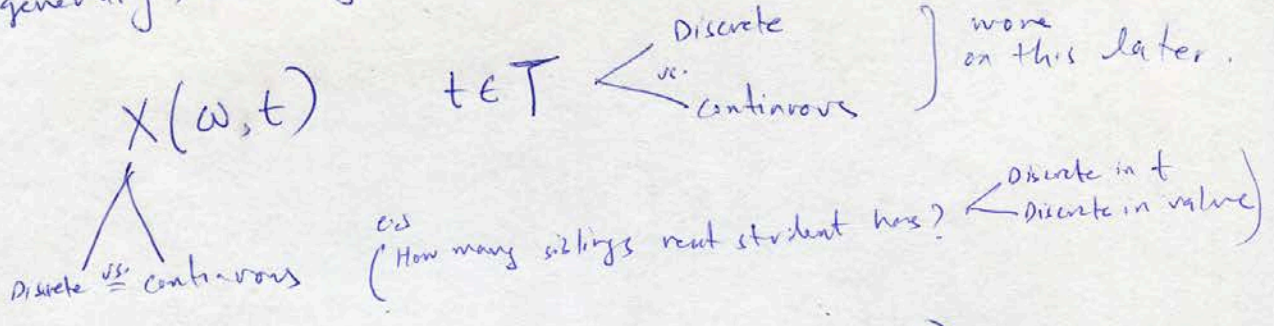 generally,
X(ω,t) t ∈ T < Discrete vs. continuous } more on this later.
Discrete vs. continuous
(How many siblings next student has? < Discrete in t
Discrete in value)